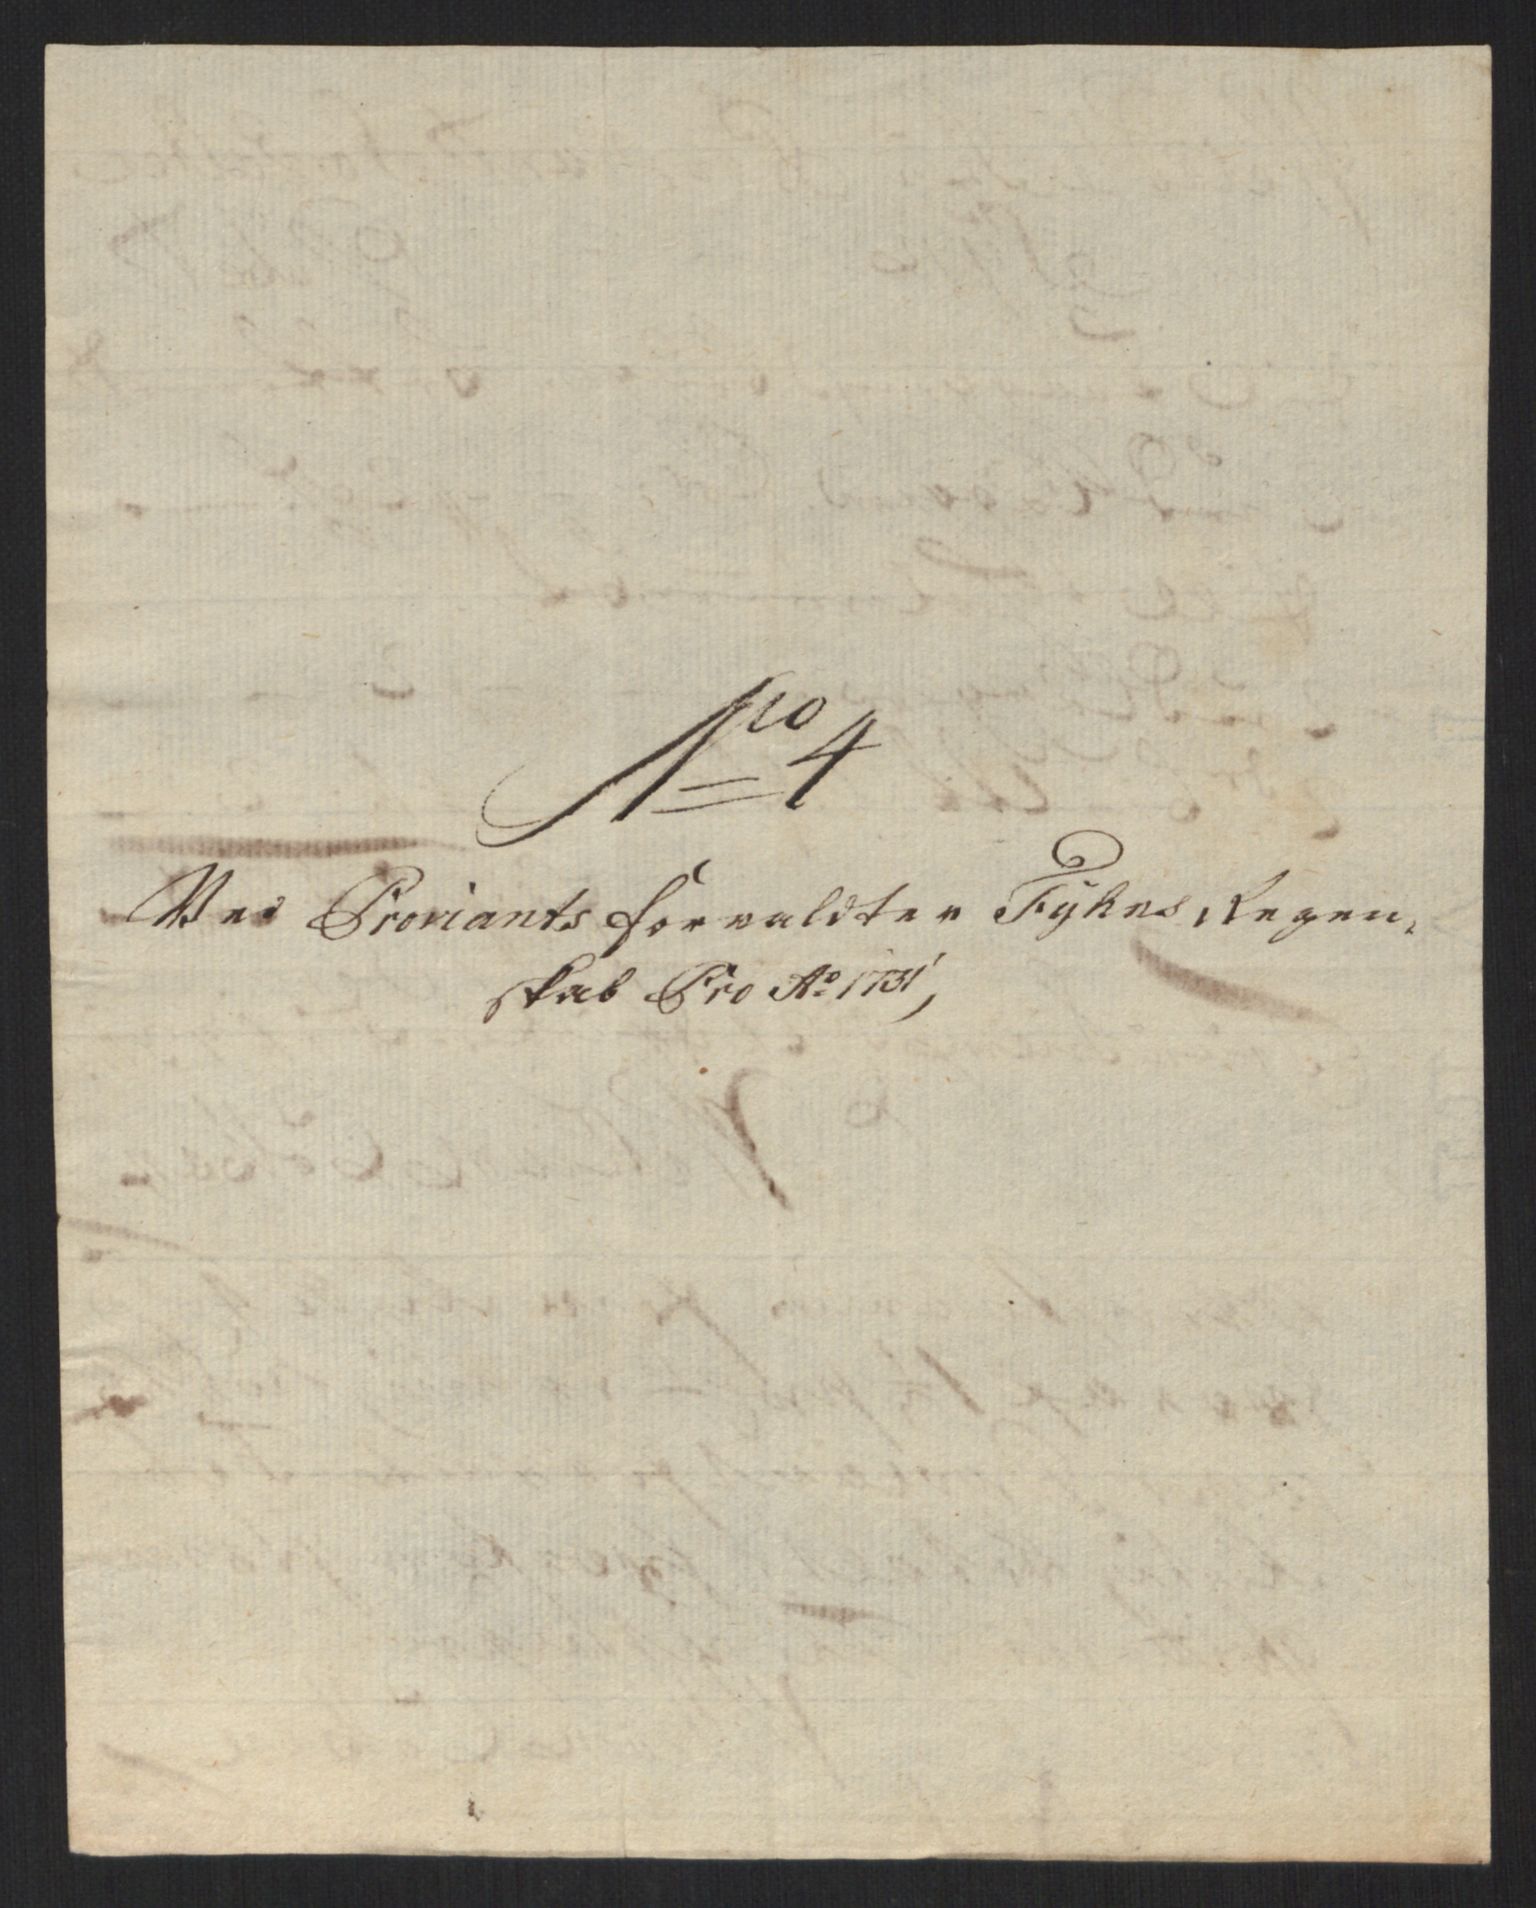 No 4
Ved Proviantsforvaldter Fykes Regen,
skab Pro Ao 1731,